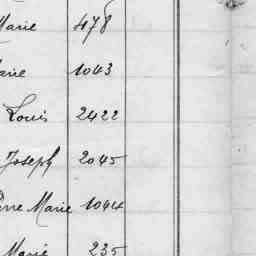 Marie 478
Marie 1043
Louis 2422
Joseph 2045
Pierre Marie 1044
Marie 235